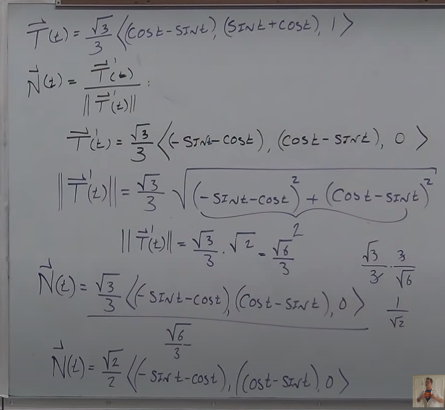 T⃗(t) = √3/3 ⟨(cost-SINt), (SINt+cost), 1⟩
N⃗(t) = T⃗'(t) / ||T⃗'(t)|| :
T⃗'(t) = √3/3 ⟨(-SINt-cost), (cost-SINt), 0⟩
||T⃗'(t)|| = √3/3 √((-SINt-cost)² + (cost-SINt)²)
2
||T⃗'(t)|| = √3/3 · √2 = √6/3
√3/3 · 3/√6
1/√2
N⃗(t) = √3/3 ⟨(-SINt-cost), (cost-SINt), 0⟩ / √6/3
N⃗(t) = √2/2 ⟨(-SINt-cost), (cost-SINt), 0⟩